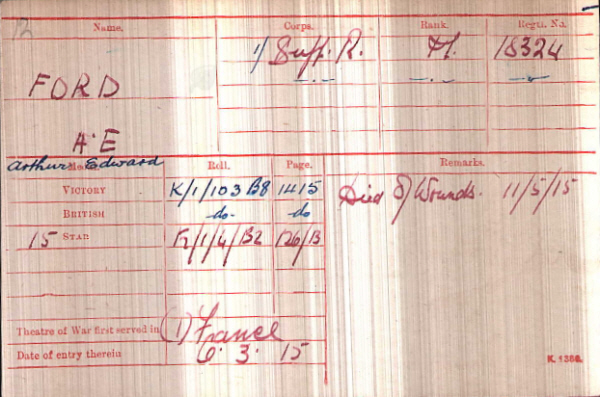 Name. Corps. Rank. Regtl. No.
1/ Suff. R. Pt. 18324
FORD -..- -..- -..-
A. E
Arthur Edward
Medal Roll. Page. Remarks.
VICTORY K/1/103 B8 1415 Died of Wounds. 11/5/15
BRITISH -do- do
15 STAR K/1/4/B2 126/B
Theatre of War first served in (1) France
Date of entry therein 6. 3. 15
K. 1380.